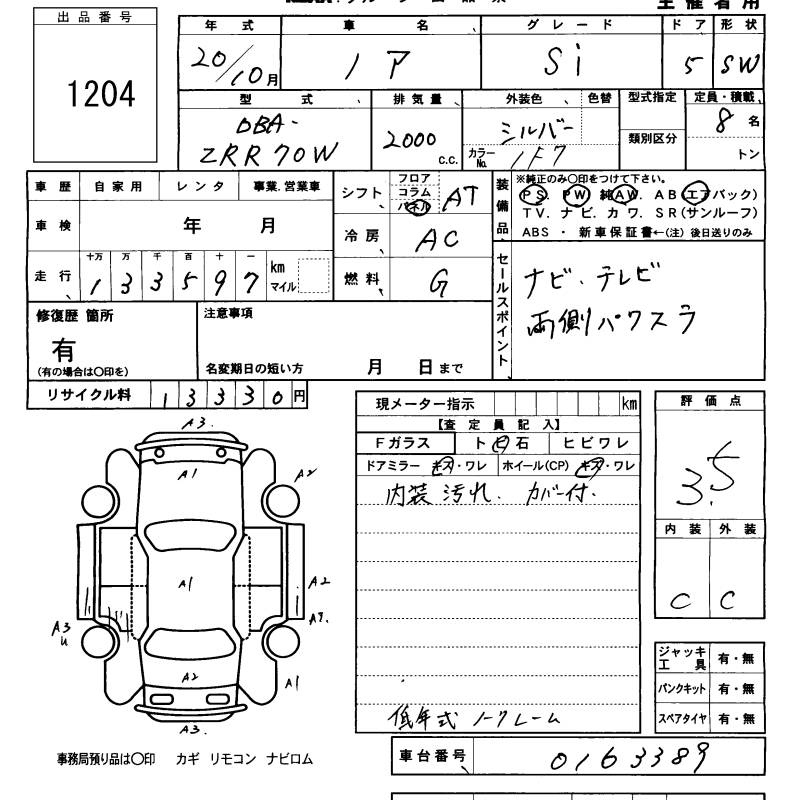 主催者用
出品番号
1204
年式 車名 グレード ドア 形状
20/10月 ノア Si 5 SW
型式 排気量 外装色 色替 型式指定 定員・積載
DBA-
ZRR70W 2000 c.c. シルバー カラーNo. 1F7 類別区分 8名
トン
車歴 自家用 レンタ 事業.営業車
車検 年 月
走行 十万 万 千 百 十 一
133597 km マイル
シフト フロア コラム パネル AT
冷房 AC
燃料 G
装備品 ※純正のみ○印をつけて下さい。
PS. PW. 純AW. AB(エアバック)
TV. ナビ. カワ. SR(サンルーフ)
ABS・新車保証書←(注)後日送りのみ
セールスポイント
ナビ.テレビ
両側パワスラ
修復歴 箇所
有
(有の場合は○印を)
注意事項
名変期日の短い方 月 日まで
リサイクル料 13330円
現メーター指示 km
【査定員記入】
Fガラス ト ビ 石 ヒビワレ
ドアミラー キズ・ワレ ホイール(CP) キズ・ワレ
内装汚れ. カバー付.
低年式 ノークレーム
評価点
3.5
内装 外装
C C
ジャッキ工具 有・無
パンクキット 有・無
スペアタイヤ 有・無
A3.
A1
A2
A1
A2
A3
U
A1
A2
A3.
事務局預り品は○印 カギ リモコン ナビロム
車台番号 0163389